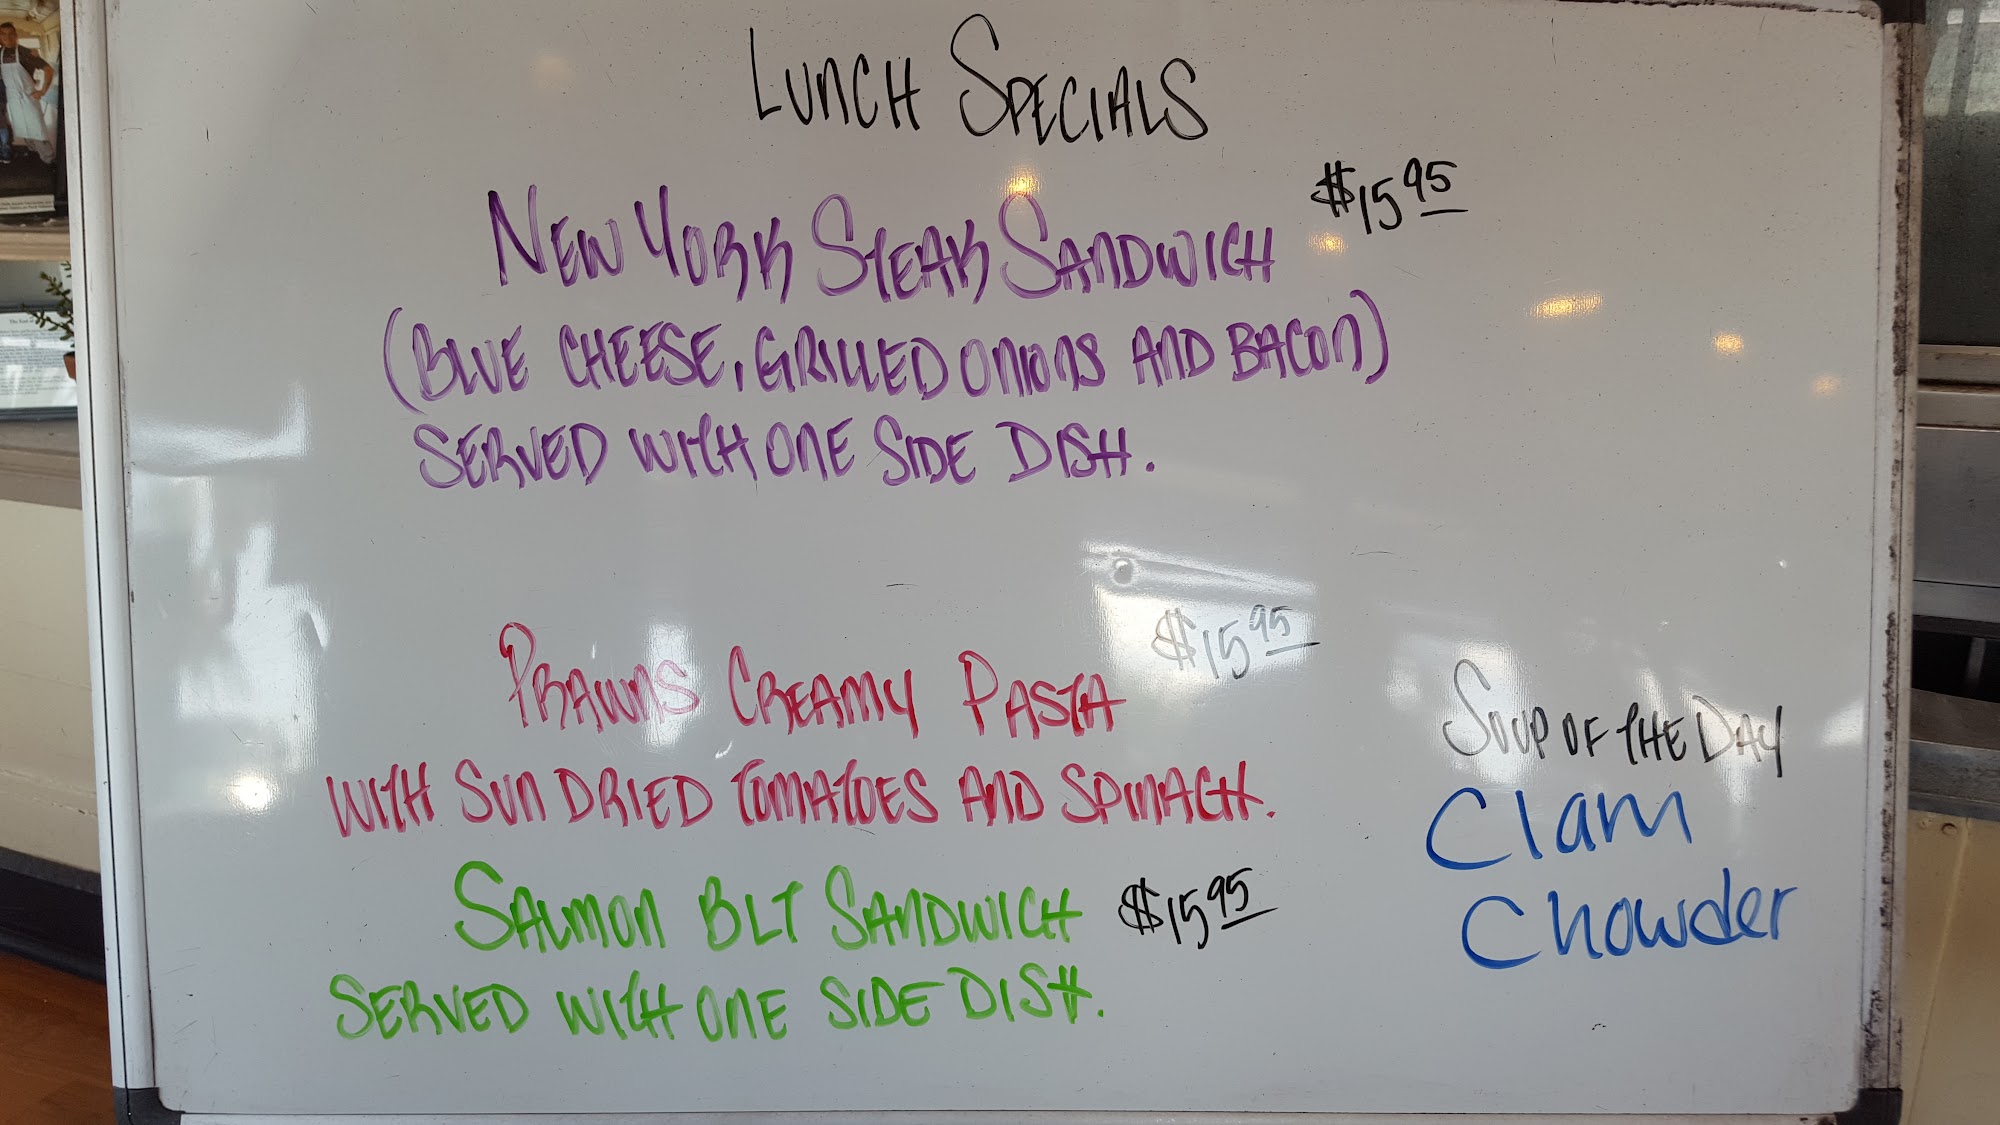 LUNCH SPECIALS
NEW YORK STEAK SANDWICH $15.95
(BLUE CHEESE, GRILLED ONIONS AND BACON)
SERVED WITH ONE SIDE DISH.
PRAWNS CREAMY PASTA $15.95
WITH SUN DRIED TOMATOES AND SPINACH.
SALMON BLT SANDWICH $15.95
SERVED WITH ONE SIDE DISH.
SOUP OF THE DAY
Clam
Chowder